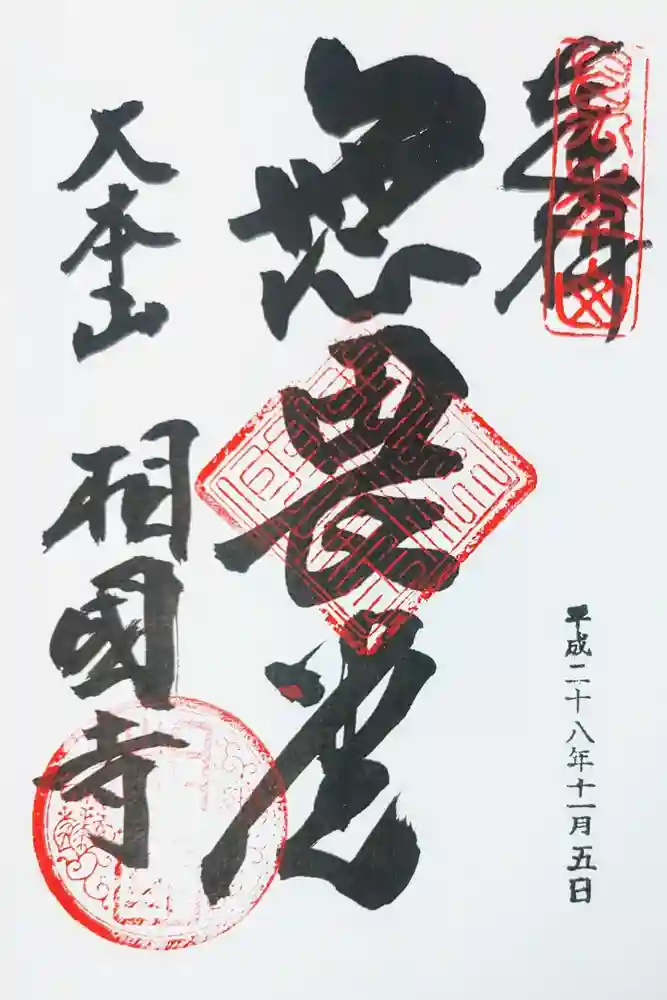 奉拝
平成二十八年十一月五日
無畏堂
大本山
相國寺